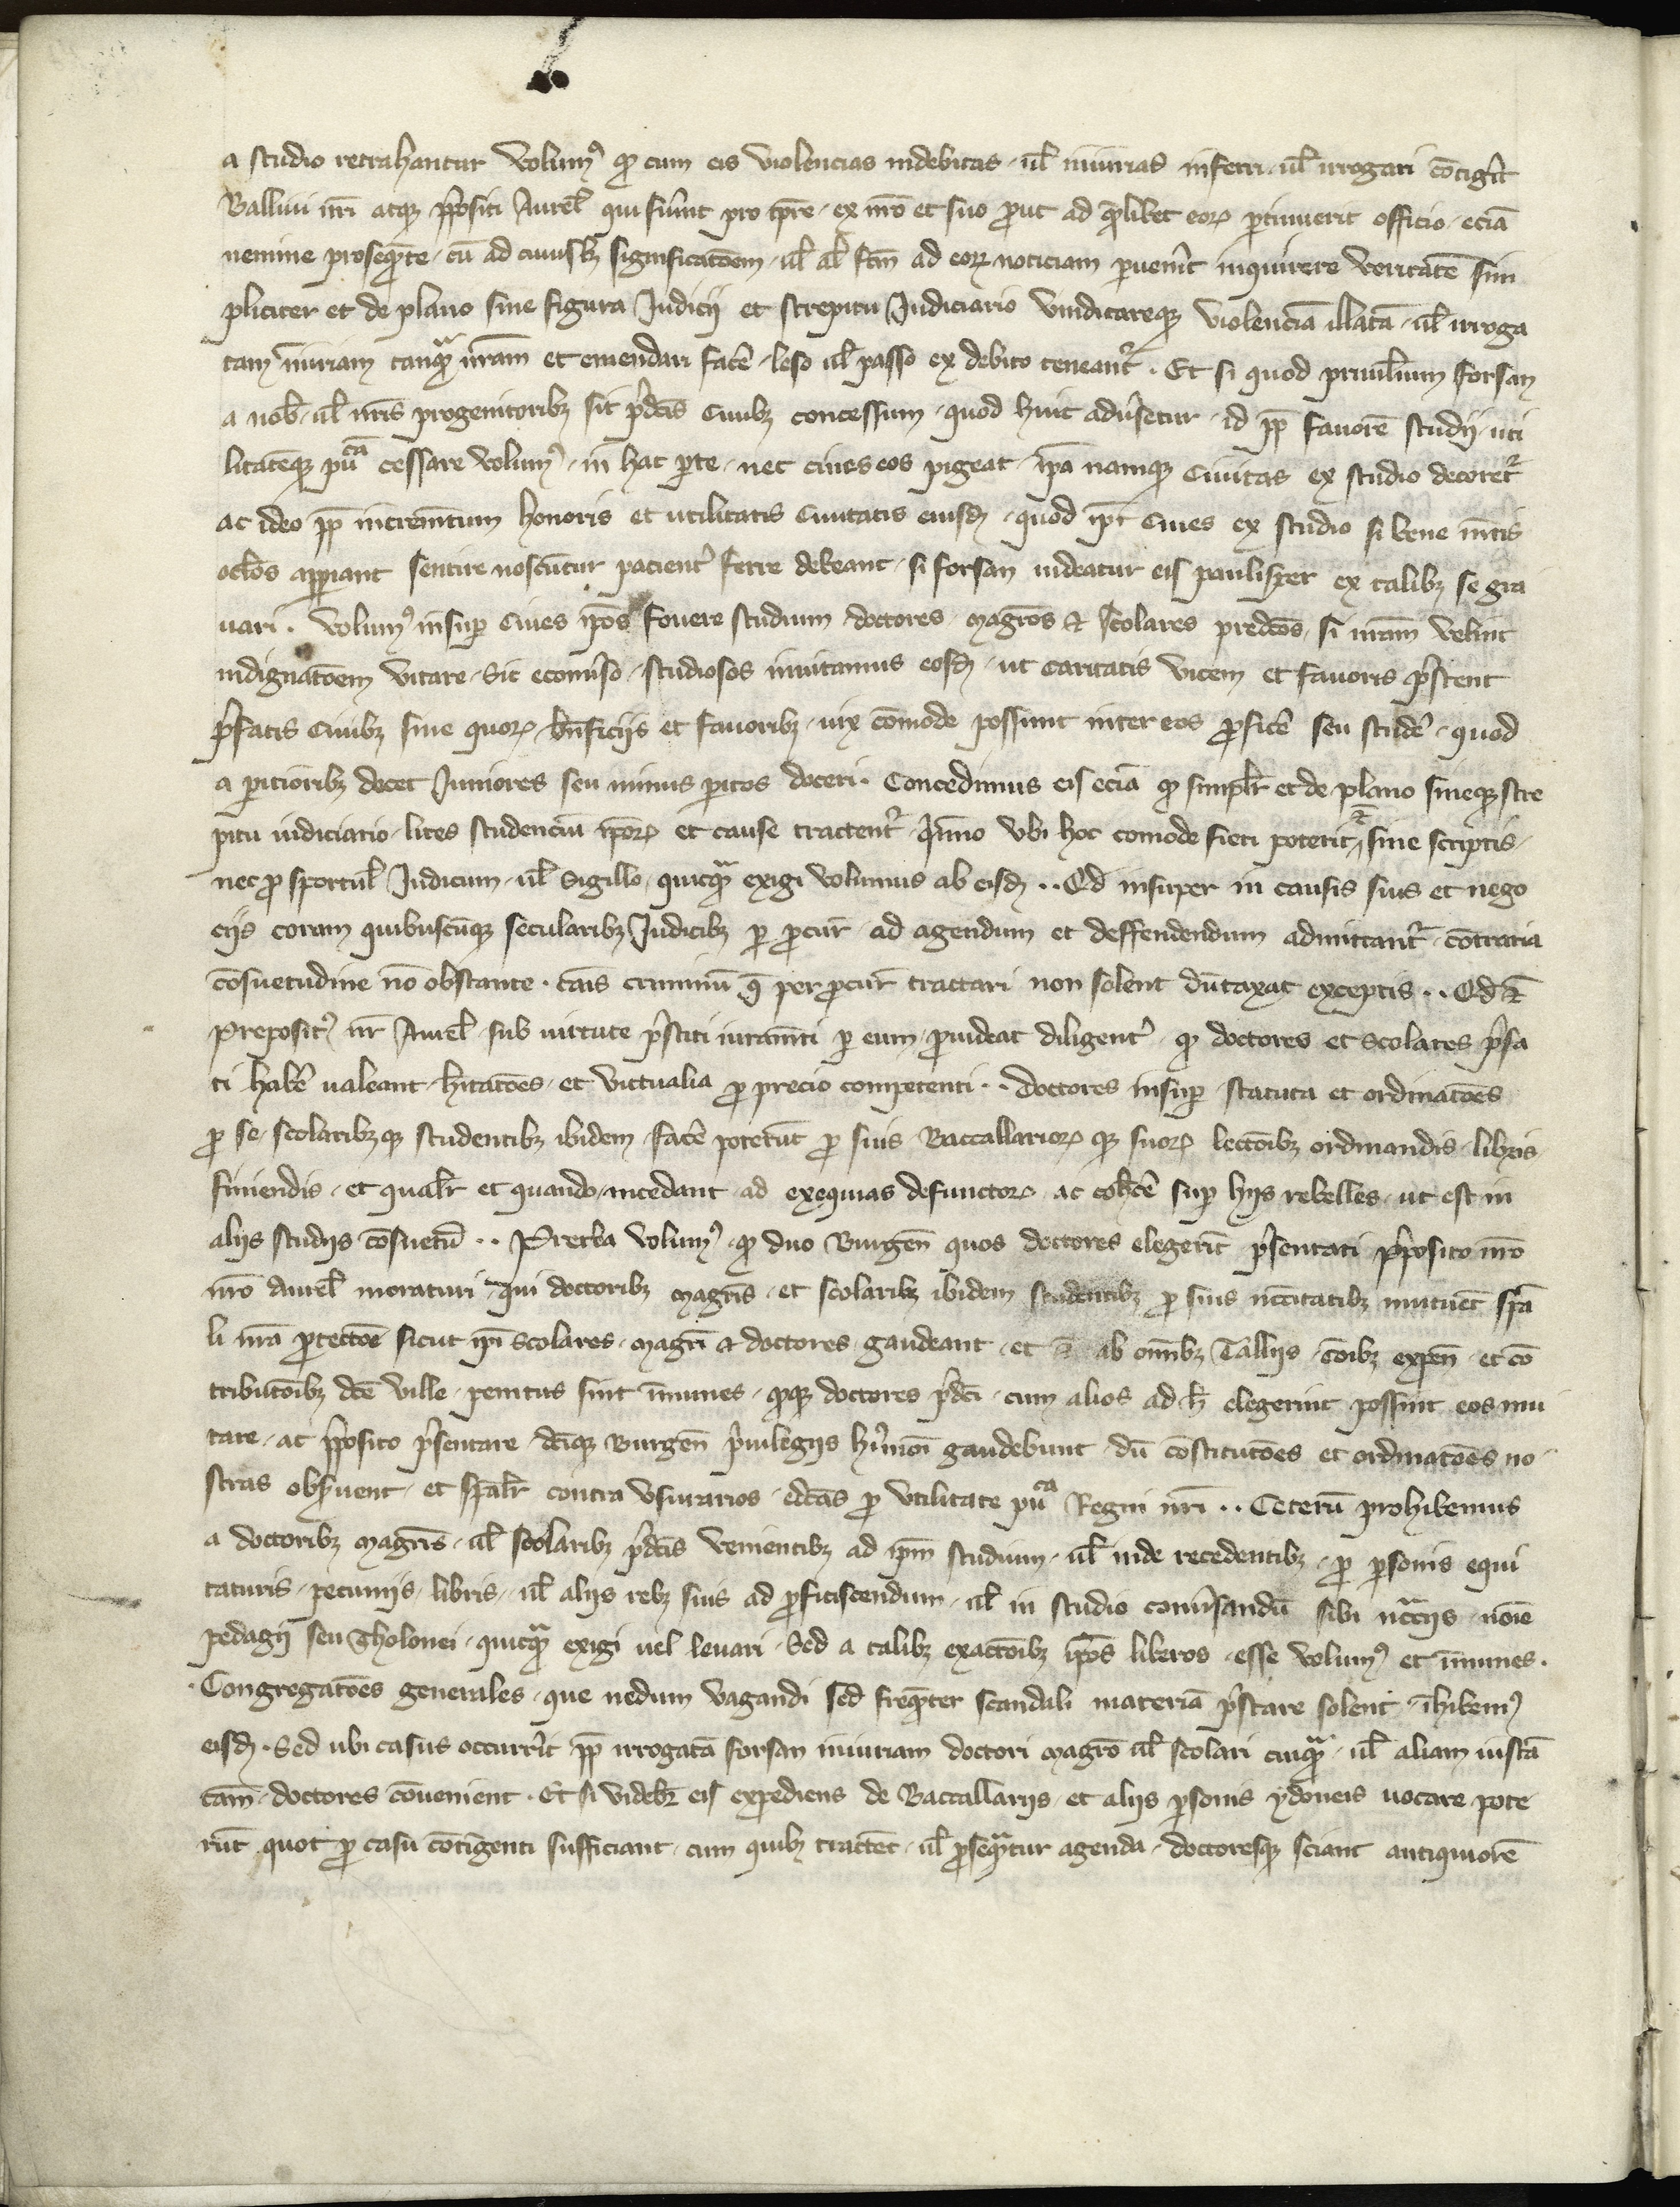 a studio retrahantur volumꝰ ꝙ cum eis violencias indebitas ul̄ iniurias inferri ul̄ irrogari cōtigerit
Balliui nr̄i atqꝫ p̄positi Aurel̄ qui fuerint pro tp̄re ex nr̄o et suo ꝓut ad q̄mlibet eoꝝ ꝑtinuerit officio eciā
nemine proseq̄nte cū ad cuiuslꝫ significatōem ul̄ al̄ fc̄m ad eoꝝ noticiam ꝑuenerit inquirere veritatē sim
pliciter et de plano sine figura Iudicij et strepitu Iudiciario vindicareqꝫ violenciā illatā ul̄ irroga
tam iniuriam tanqᵃm nr̄am et emendari facē leso ul̄ passo ex debito teneantᷣ. Et si quod priuil̄ium forsan
a nob̄ ul̄ nr̄is progenitoribꝫ sit p̄dcīs Ciuibꝫ concessum quod huic aduersetur id ꝓp̄ fauorē studij uti
litatēqꝫ pu͞cā cessare volumꝰ in hac ꝑte nec ciues eos pigeat ip̄a namqꝫ Ciuitas ex studio decoretᷣ
ac ideo ꝓp̄ increm̄tum honoris et utilitatis Ciuitatis eiusdꝫ quod ip̄i Ciues ex studio si bene mn̄tis
oclōs aꝑiant sentire noscūtur pacientᷣ ferre debeant si forsan uideatur eis paulisper ex talibꝫ se gra
uari. Volumꝰ insuꝑ Ciues ip̄os fouere studium doctores magr̄os & Scolares predcōs si nr̄am velint
indignatōem vitare Sic econuerso studiosos inuitamus eosdꝫ ut caritatis vicem et fauoris p̄stent
p̄fatis Ciuibꝫ sine quoꝝ bn̄ficijs et fauoribꝫ uix cōmode possunt inter eos ꝓficē seu studē quod
a ꝑicioribꝫ docet Iuniores seu minus ꝑitos doceri. Concedimus eis eciā ꝙ simpl̄r et de plano sineqꝫ stre
pitu iudiciario lites studenciū ip̄oꝝ et cause tractentᷣ Immo vbi hoc comode fieri poterit et̄ sine scriptis
nec ꝓ sportul̄ Iudicum ul̄ Sigillo quicqᵃm exigi volumus ab eisdꝫ .. Qd̄ insuper in causis suis et nego
cijs coram quibuscūqꝫ secularibꝫ Iudicibꝫ ꝑ ꝓcur̄ ad agendum et deffendendum admittantᷣ cōtraria
cōsuetudine nō obstante cāis criminū q̄ per ꝓcur̄ tractari non solent dūtaxat exceptis .. Qd̄ et̄
Prepositꝰ nr̄ Aurel̄ sub uirtute p̄stiti iuram̄ti ꝑ eum ꝓuideat diligentᷣ ꝙ doctores et Scolares p̄fa
ti habē ualeant hītatōes et victualia ꝓ precio competenti .. doctores insuꝑ statuta et ordinatōes
ꝓ se scolaribꝫqꝫ studentibꝫ ibidem facē poterūt ꝓ suis Baccallarioꝝ qꝫ suoꝝ lectōibꝫ ordinandis libris
finiendis et qual̄r et quando incedant ad exequias defunctoꝝ ac coh̄cē suꝑ hijs rebelles ut est in
alijs studijs cōsuetū .. Pretea volumꝰ ꝙ duo Burgen̄ quos doctores elegerīt p̄sentati p̄posito nr̄o
nr̄o Aurel̄ moraturi qui doctoribꝫ magr̄is et scolaribꝫ ibidem studentibꝫ ꝓ suis nc̄citatibꝫ mutuēt sp̄a
li nr̄a ꝓtectōe sicut ip̄i scolares magr̄i & doctores gaudeant et ab om̄ibꝫ Tallijs cōibꝫ expen̄ et cō
tributōibꝫ dc̄e ville penitus sint īmunes qꝫ doctores p̄dc̄i cum alios ad h̄ elegerint possint eos mu
tare ac p̄posito p̄sentare dc̄iqꝫ Burgen̄ p̄iuilegijs hᷣmōi gaudebunt dū cōstitutōes et ordinatōes no
stras obseruent et sp̄al̄r contra vsurarios edc̄as ꝓ vtilitate pu͞cā Regni nr̄i .. Ceterū prohibemus
a doctoribꝫ magr̄is ul̄ scolaribꝫ p̄dc̄is venientibꝫ ad ip̄m studium ul̄ inde recedentibꝫ ꝓ ꝑsonis equi
taturis pecunijs libris ul̄ alijs rebꝫ suis ad ꝓficiscendum ul̄ in studio conuersandū sibi nc̄cᵃijs noīe
pedagij seu Tholonei quicqᵃm exigi uel leuari Sed a talibꝫ exactōibꝫ ip̄os liberos esse volumꝰ et īmunes.
Congregatōes generales que nedum vagandi sed freq̄nter scandali materiā p̄stare solent īhibemꝰ
eisdꝫ. Sed ubi casus occurrerit ꝓp̄ irrogatā forsan iniuriam doctori magr̄o ul̄ scolari cuiqᵃm ul̄ aliam iustā
cām doctores cōuenient. Et si videbr̄ eis expediens de Baccallarijs et alijs ꝑsonis ydoneis uocare pote
rūt quot ꝓ casu cōtigenti sufficiant cum quibꝫ tractēt ul̄ ꝓseqᵃntur agenda doctoresqꝫ sciant antiquiorē